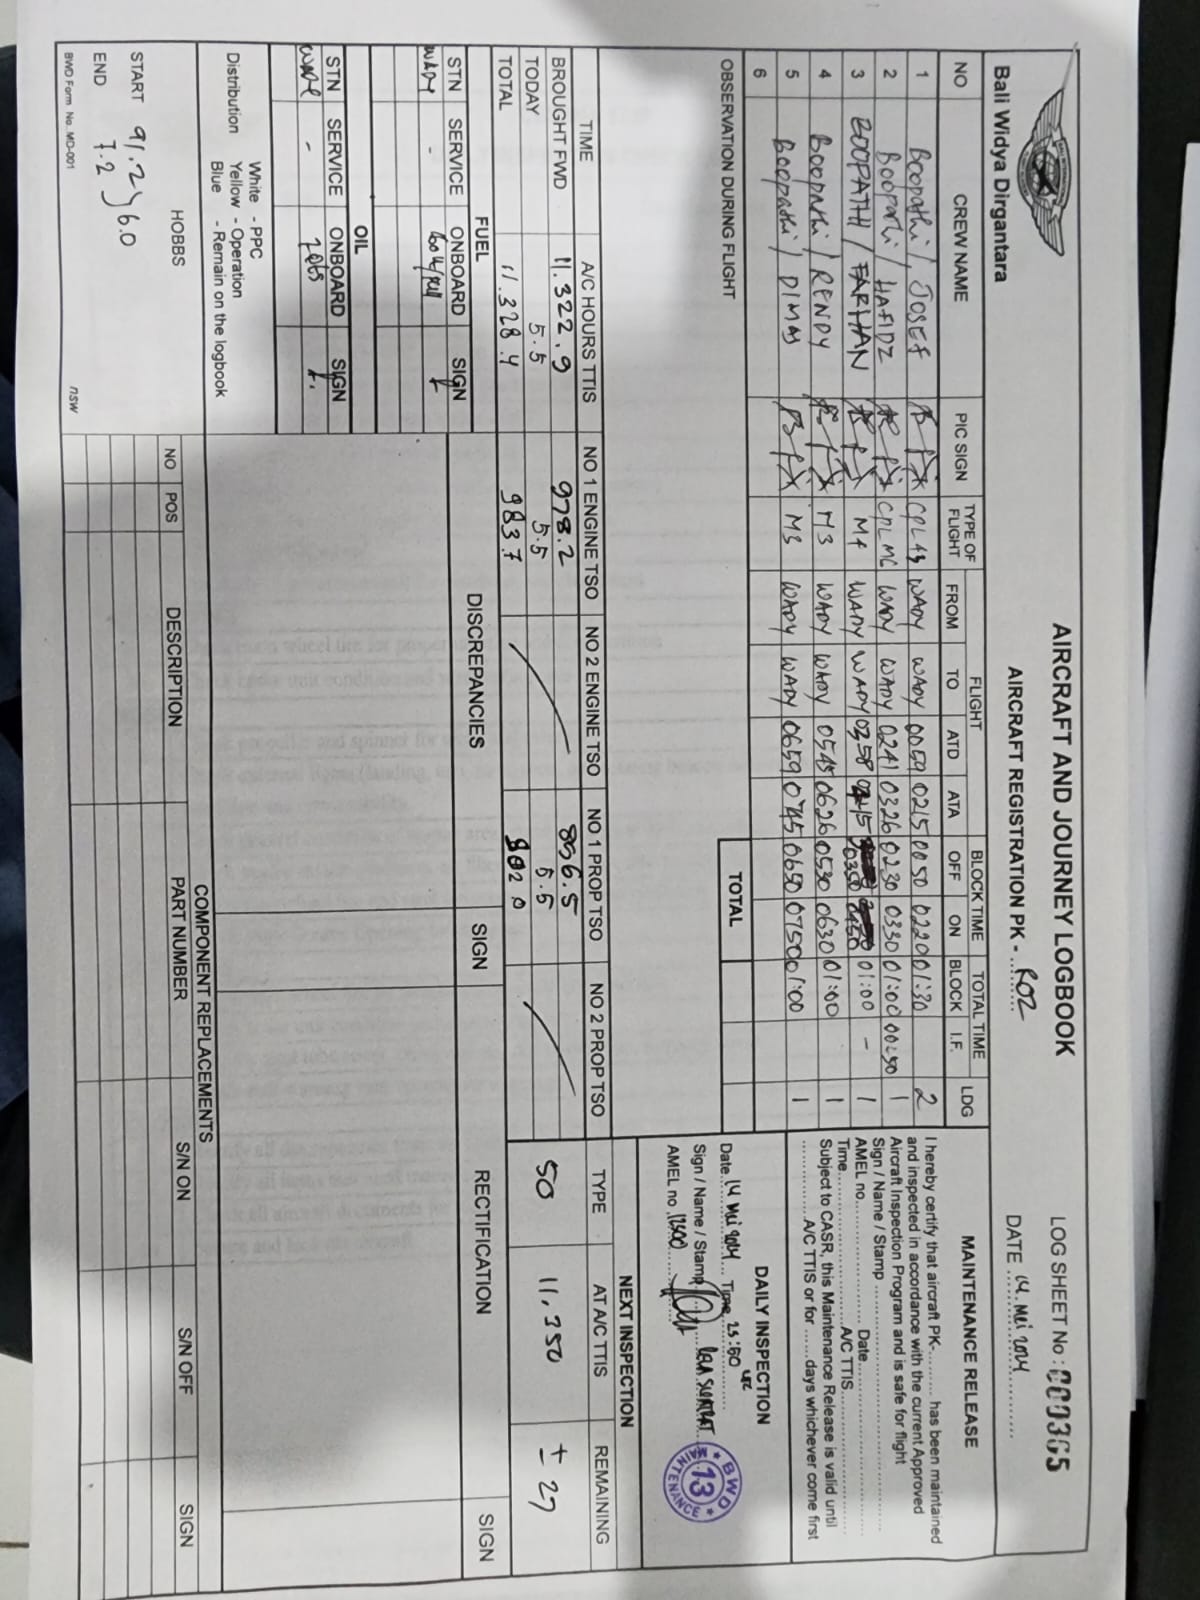 Bali Widya Dirgantara
AIRCRAFT AND JOURNEY LOGBOOK
AIRCRAFT REGISTRATION PK - ROZ
LOG SHEET No : 000365
DATE 14. Mei 2024
NO CREW NAME PIC SIGN TYPE OF FLIGHT FLIGHT FROM TO ATD ATA BLOCK TIME OFF ON TOTAL TIME BLOCK I.F. LDG
1 Boopathi / JOSEF WADY WADY 0059 0215 0050 0220 01:30 2
2 Boopathi / HAFIDZ CPL MC WADY WADY 0241 0326 0230 0330 01:00 00:50 1
3 BOOPATHI / FARHAN M4 WADY WADY 0358 0445 0350 0450 01:00 - 1
4 Boopathi / RENDY M3 WADY WADY 0545 0626 0530 0630 01:00 1
5 Boopathi / DIMAS M3 WADY WADY 0659 0745 0650 0750 01:00 1
6
TOTAL
OBSERVATION DURING FLIGHT
MAINTENANCE RELEASE
I hereby certify that aircraft PK-.......... has been maintained
and inspected in accordance with the current Approved
Aircraft Inspection Program and is safe for flight
Sign / Name / Stamp
AMEL no. Date
Time A/C TTIS
Subject to CASR, this Maintenance Release is valid until
A/C TTIS or for ......days whichever come first
DAILY INSPECTION
Date 14 Mei 2024 Time 23:50
Sign / Name / Stamp
AMEL no.
BWD
13
MAINTENANCE
TIME A/C HOURS TTIS NO 1 ENGINE TSO NO 2 ENGINE TSO NO 1 PROP TSO NO 2 PROP TSO
BROUGHT FWD 11.322.9 978.2 896.5
TODAY 5.5 5.5 5.5
TOTAL 11.328.4 983.7 902.0
NEXT INSPECTION
TYPE AT A/C TTIS REMAINING
50 11,350 ± 27
FUEL
STN SERVICE ONBOARD SIGN
WADY -
OIL
STN SERVICE ONBOARD SIGN
- 7 qts
DISCREPANCIES SIGN RECTIFICATION SIGN
Distribution White - PPC
Yellow - Operation
Blue - Remain on the logbook
COMPONENT REPLACEMENTS
NO POS DESCRIPTION PART NUMBER S/N ON S/N OFF SIGN
HOBBS
START 91.2
END 7.2
6.0
BWD Form No. MO-001
nsw